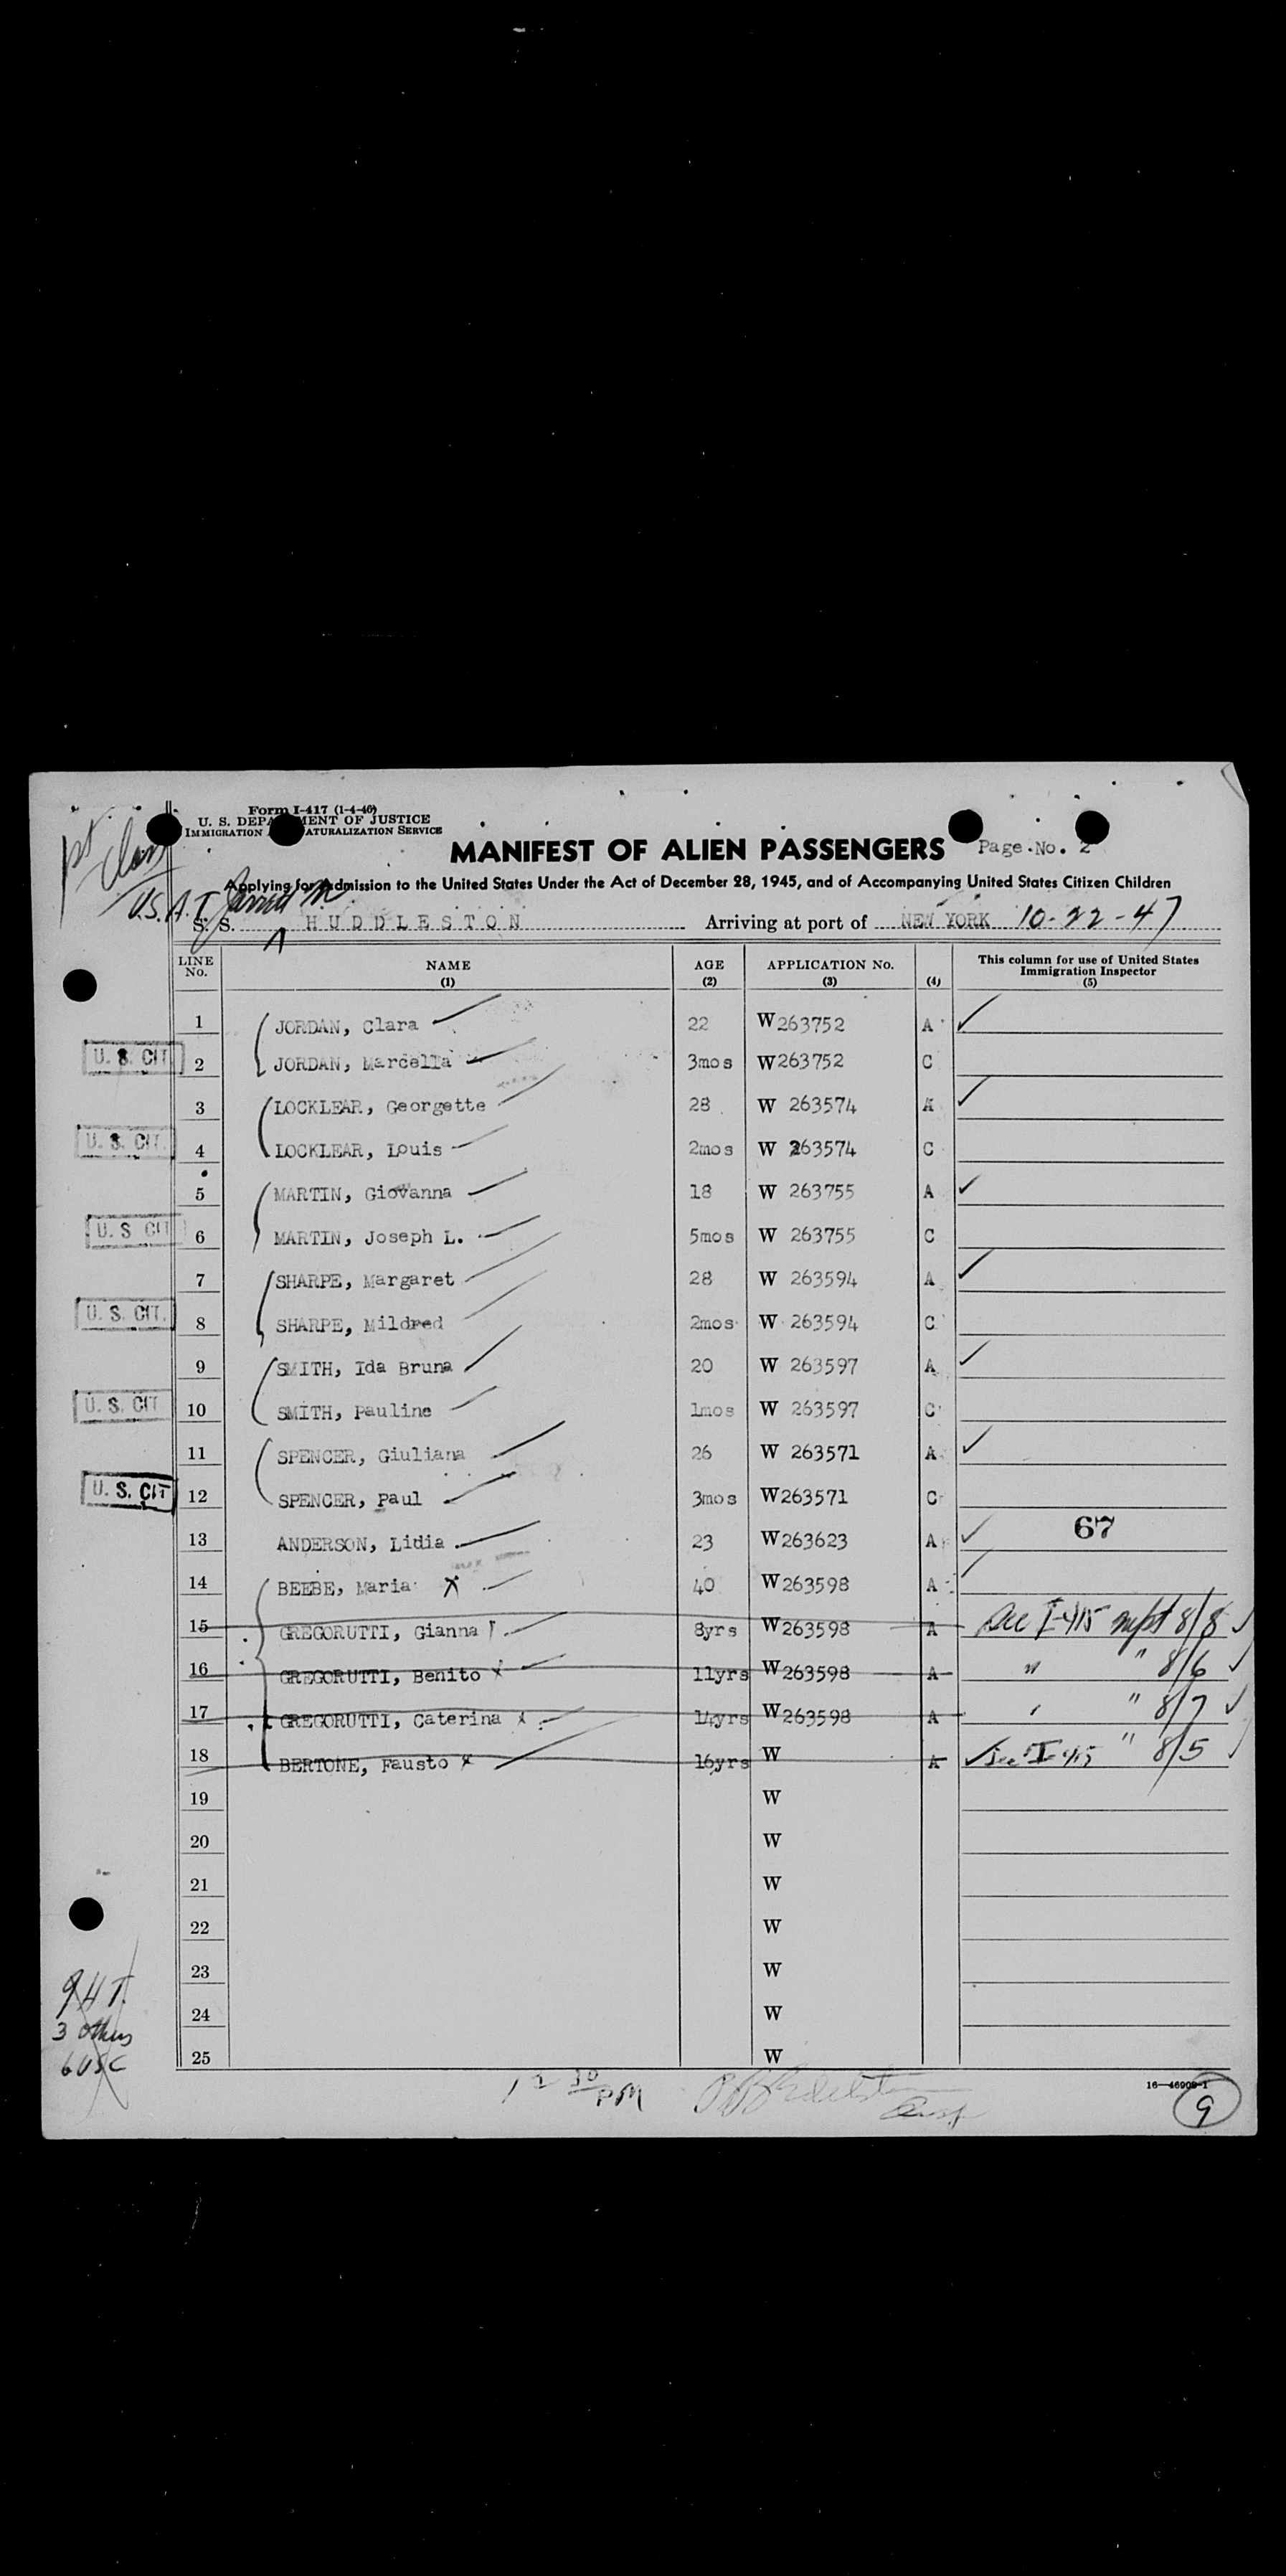 Form I-417 (1-4-46)
U. S. DEPA MENT OF JUSTICE
IMMIGRATION ATURALIZATION SERVICE
MANIFEST OF ALIEN PASSENGERS Page No. 2
Applying for Admission to the United States Under the Act of December 28, 1945, and of Accompanying United States Citizen Children
U.S.A.T. M.
S. S. HUDDLESTON Arriving at port of NEW YORK 10-22-47
LINE No. NAME (1) AGE (2) APPLICATION No. (3) (4) This column for use of United States Immigration Inspector (5)
1 JORDAN, Clara 22 W263752 A
U. S. CIT. 2 JORDAN, Marcella 3mos W263752 C
3 LOCKLEAR, Georgette 28 W 263574 A
U. S. CIT. 4 LOCKLEAR, Louis 2mos W 263574 C
5 MARTIN, Giovanna 18 W 263755 A
U. S CIT 6 MARTIN, Joseph L. 5mos W 263755 C
7 SHARPE, Margaret 28 W 263594 A
U. S. CIT. 8 SHARPE, Mildred 2mos W 263594 C
9 SMITH, Ida Bruna 20 W 263597 A
U. S. CIT 10 SMITH, Pauline 1mos W 263597 C
11 SPENCER, Giuliana 26 W 263571 A
U. S. CIT 12 SPENCER, Paul 3mos W263571 C
13 ANDERSON, Lidia 23 W263623 A 67
14 BEEBE, Maria X 40 W263598 A
15 GREGORUTTI, Gianna 8yrs W263598 A See I-415 8/8
16 GREGORUTTI, Benito x 11yrs W263598 A " " 8/6
17 GREGORUTTI, Caterina x 14yrs W263598 A " " 8/7
18 BERTONE, Fausto x 16yrs W A See I-415 " 8/5
19 W
20 W
21 W
22 W
23 W
24 W
25 W
9 HT.
3 others
6 USC
12 30 PM
16—46909-1
9